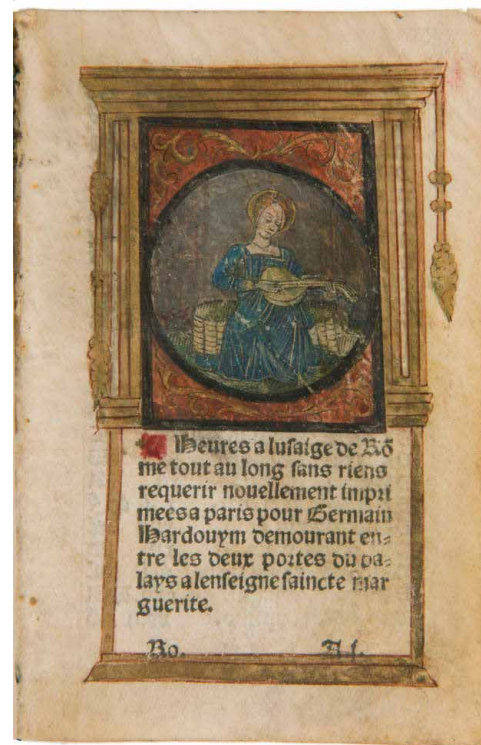 Heures a lusaige de Rō
me tout au long sans riens
requerir nouellement impri
mees a paris pour Germain
Hardouym demourant en-
tre les deux portes du pa-
lays a lenseigne saincte mar
guerite.
Ro. A.j.